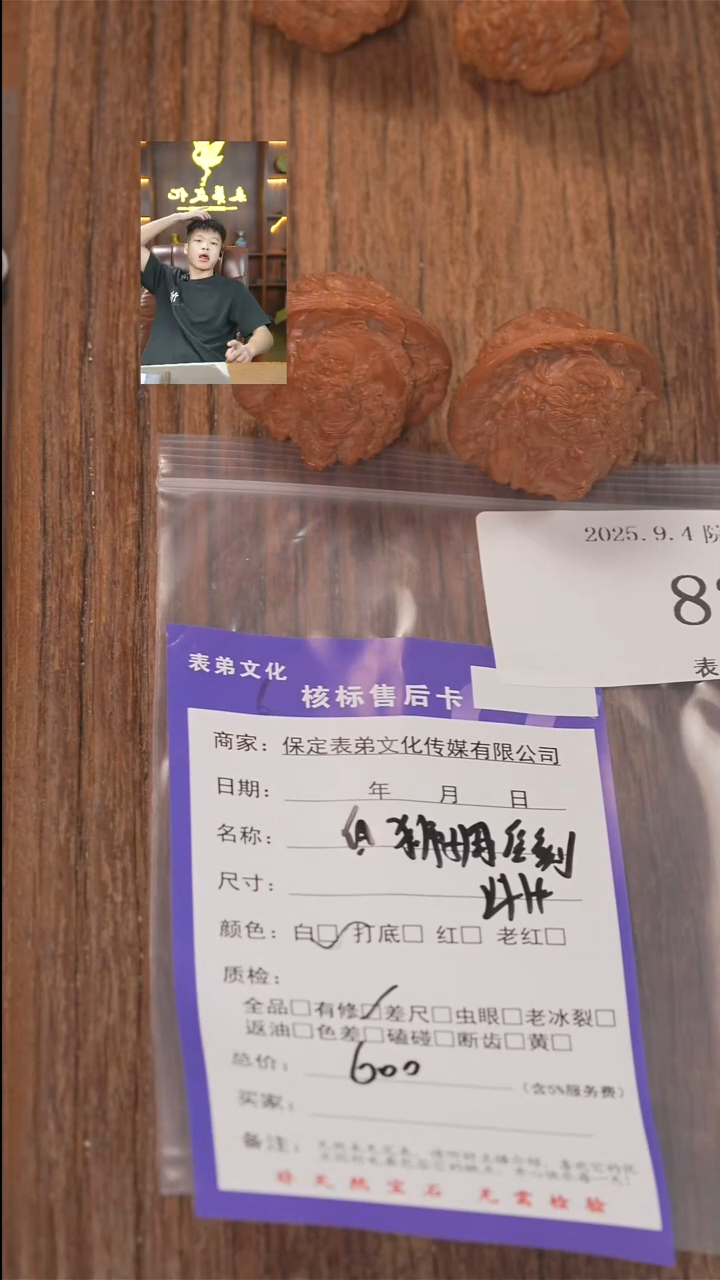 2025.9.4 院
8
表
表弟文化
核标售后卡
商家：保定表弟文化传媒有限公司
日期：年 月 日
名称：
尺寸：
颜色：白□ 打底□ 红□ 老红□
质检：
全品□有修□差尺□虫眼□老冰裂□
返油□色差□磕碰□断齿□黄□
总价：600（含5%服务费）
买家：
备注：
非天然宝石 无需检验